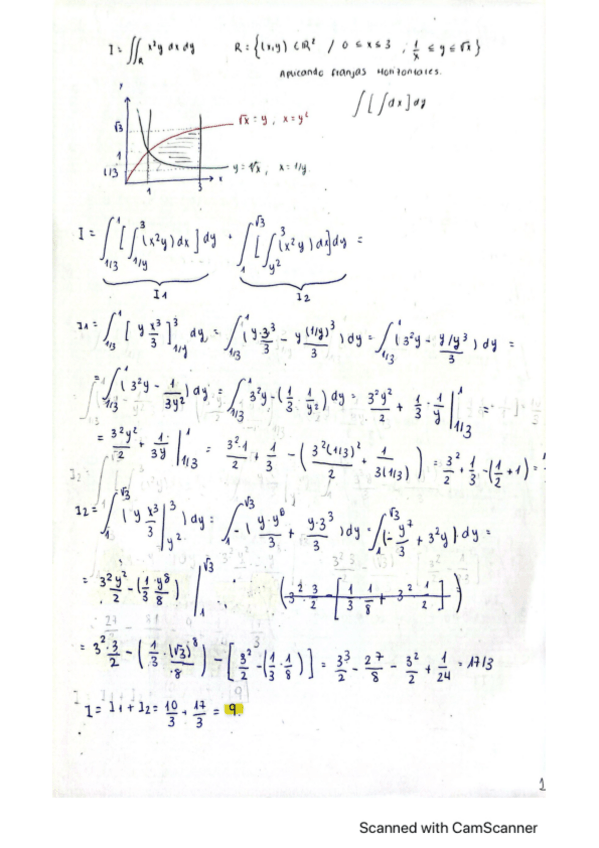 I = ∬_R x²y dx dy R = {(x,y) ∈ ℝ² / 0 ≤ x ≤ 3 , 1/x ≤ y ≤ √x}
Aplicando franjas Horizontales.
∫[∫dx]dy
y
√3
1
1/3
1
3
x
√x = y , x = y²
x = 1/y.
I = ∫_{1/3}^{1} [∫_{1/y}^{3} (x²y)dx] dy + ∫_{1}^{√3} [∫_{y²}^{3} (x²y)dx] dy =
I1 I2
I1 = ∫_{1/3}^{1} [y x³/3]_{1/y}^{3} dy = ∫_{1/3}^{1} (y·3³/3 - y(1/y)³/3) dy = ∫_{1/3}^{1} (3²y - y/y³/3) dy =
= ∫_{1/3}^{1} (3²y - 1/3y²) dy = ∫_{1/3}^{1} 3²y - (1/3 · 1/y²) dy = 3²y²/2 + 1/3 · 1/y |_{1/3}^{1} =
= 3²y²/2 + 1/3y |_{1/3}^{1} = 3²·1/2 + 1/3 - (3²(1/3)²/2 + 1/3(1/3)) = 3²/2 + 1/3 - (1/2 + 1) =
I2 = ∫_{1}^{√3} (y x³/3 |_{y²}^{3}) dy = ∫_{1}^{√3} -(y·y⁶/3 + y·3³/3) dy = ∫_{1}^{√3} (-y⁷/3 + 3²y) dy =
= 3²y²/2 - (1/3 · y⁸/8) |_{1}^{√3}
= 3²·3/2 - (1/3 · (√3)⁸/8) - [3²/2 - (1/3 · 1/8)] = 3³/2 - 27/8 - 3²/2 + 1/24 = 17/3
I = I1 + I2 = 10/3 + 17/3 = 9
1
Scanned with CamScanner